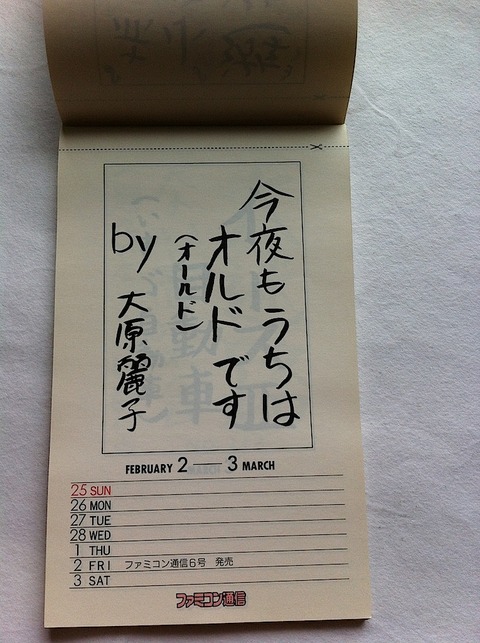 今夜もうちは
オルドです
(オールド)
by 大原麗子
FEBRUARY 2 — 3 MARCH
25 SUN
26 MON
27 TUE
28 WED
1 THU
2 FRI ファミコン通信6号 発売
3 SAT
ファミコン通信